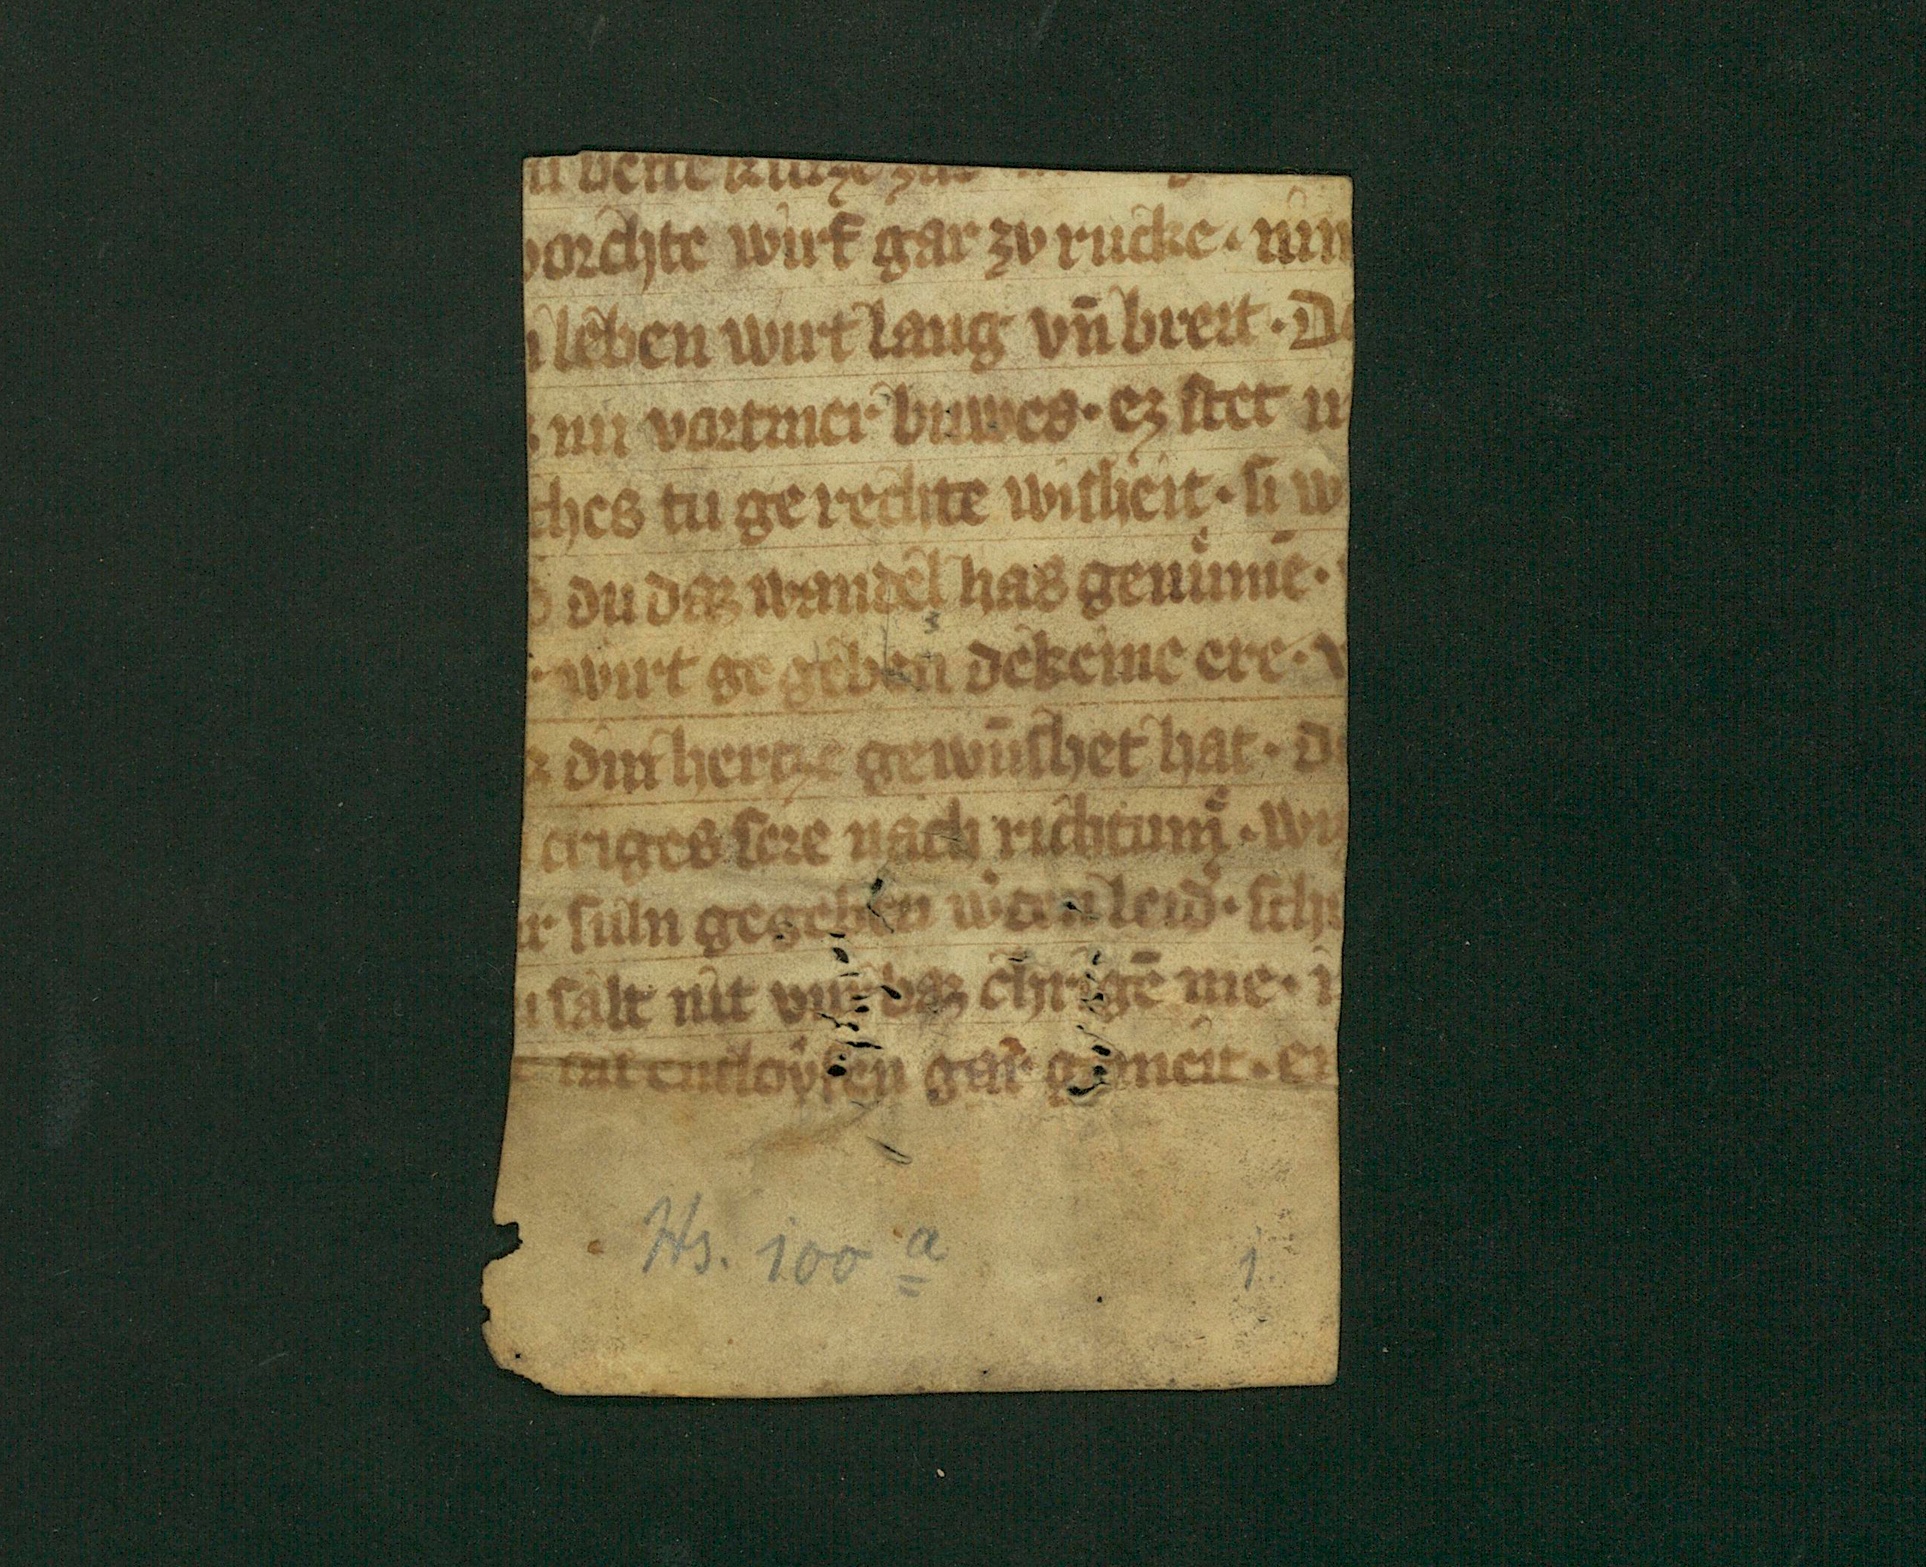 orchte wirf gar zv rucke · nim
leben wirt lang vn̄ breit · D
nu vortmer buwes · ez stet
ches tu ge rechte wisheit · si w
du daz wandel has genūmē ·
wirt ge geben dekeine ere · v
din hertze gewūshet hat · d
criges sere nach richtum ·
r suln gegeben leid · sch
salt nit vur daz ch̄rigē me · i
sal entloysen gar gemeit · er
Hs. 100 a
1